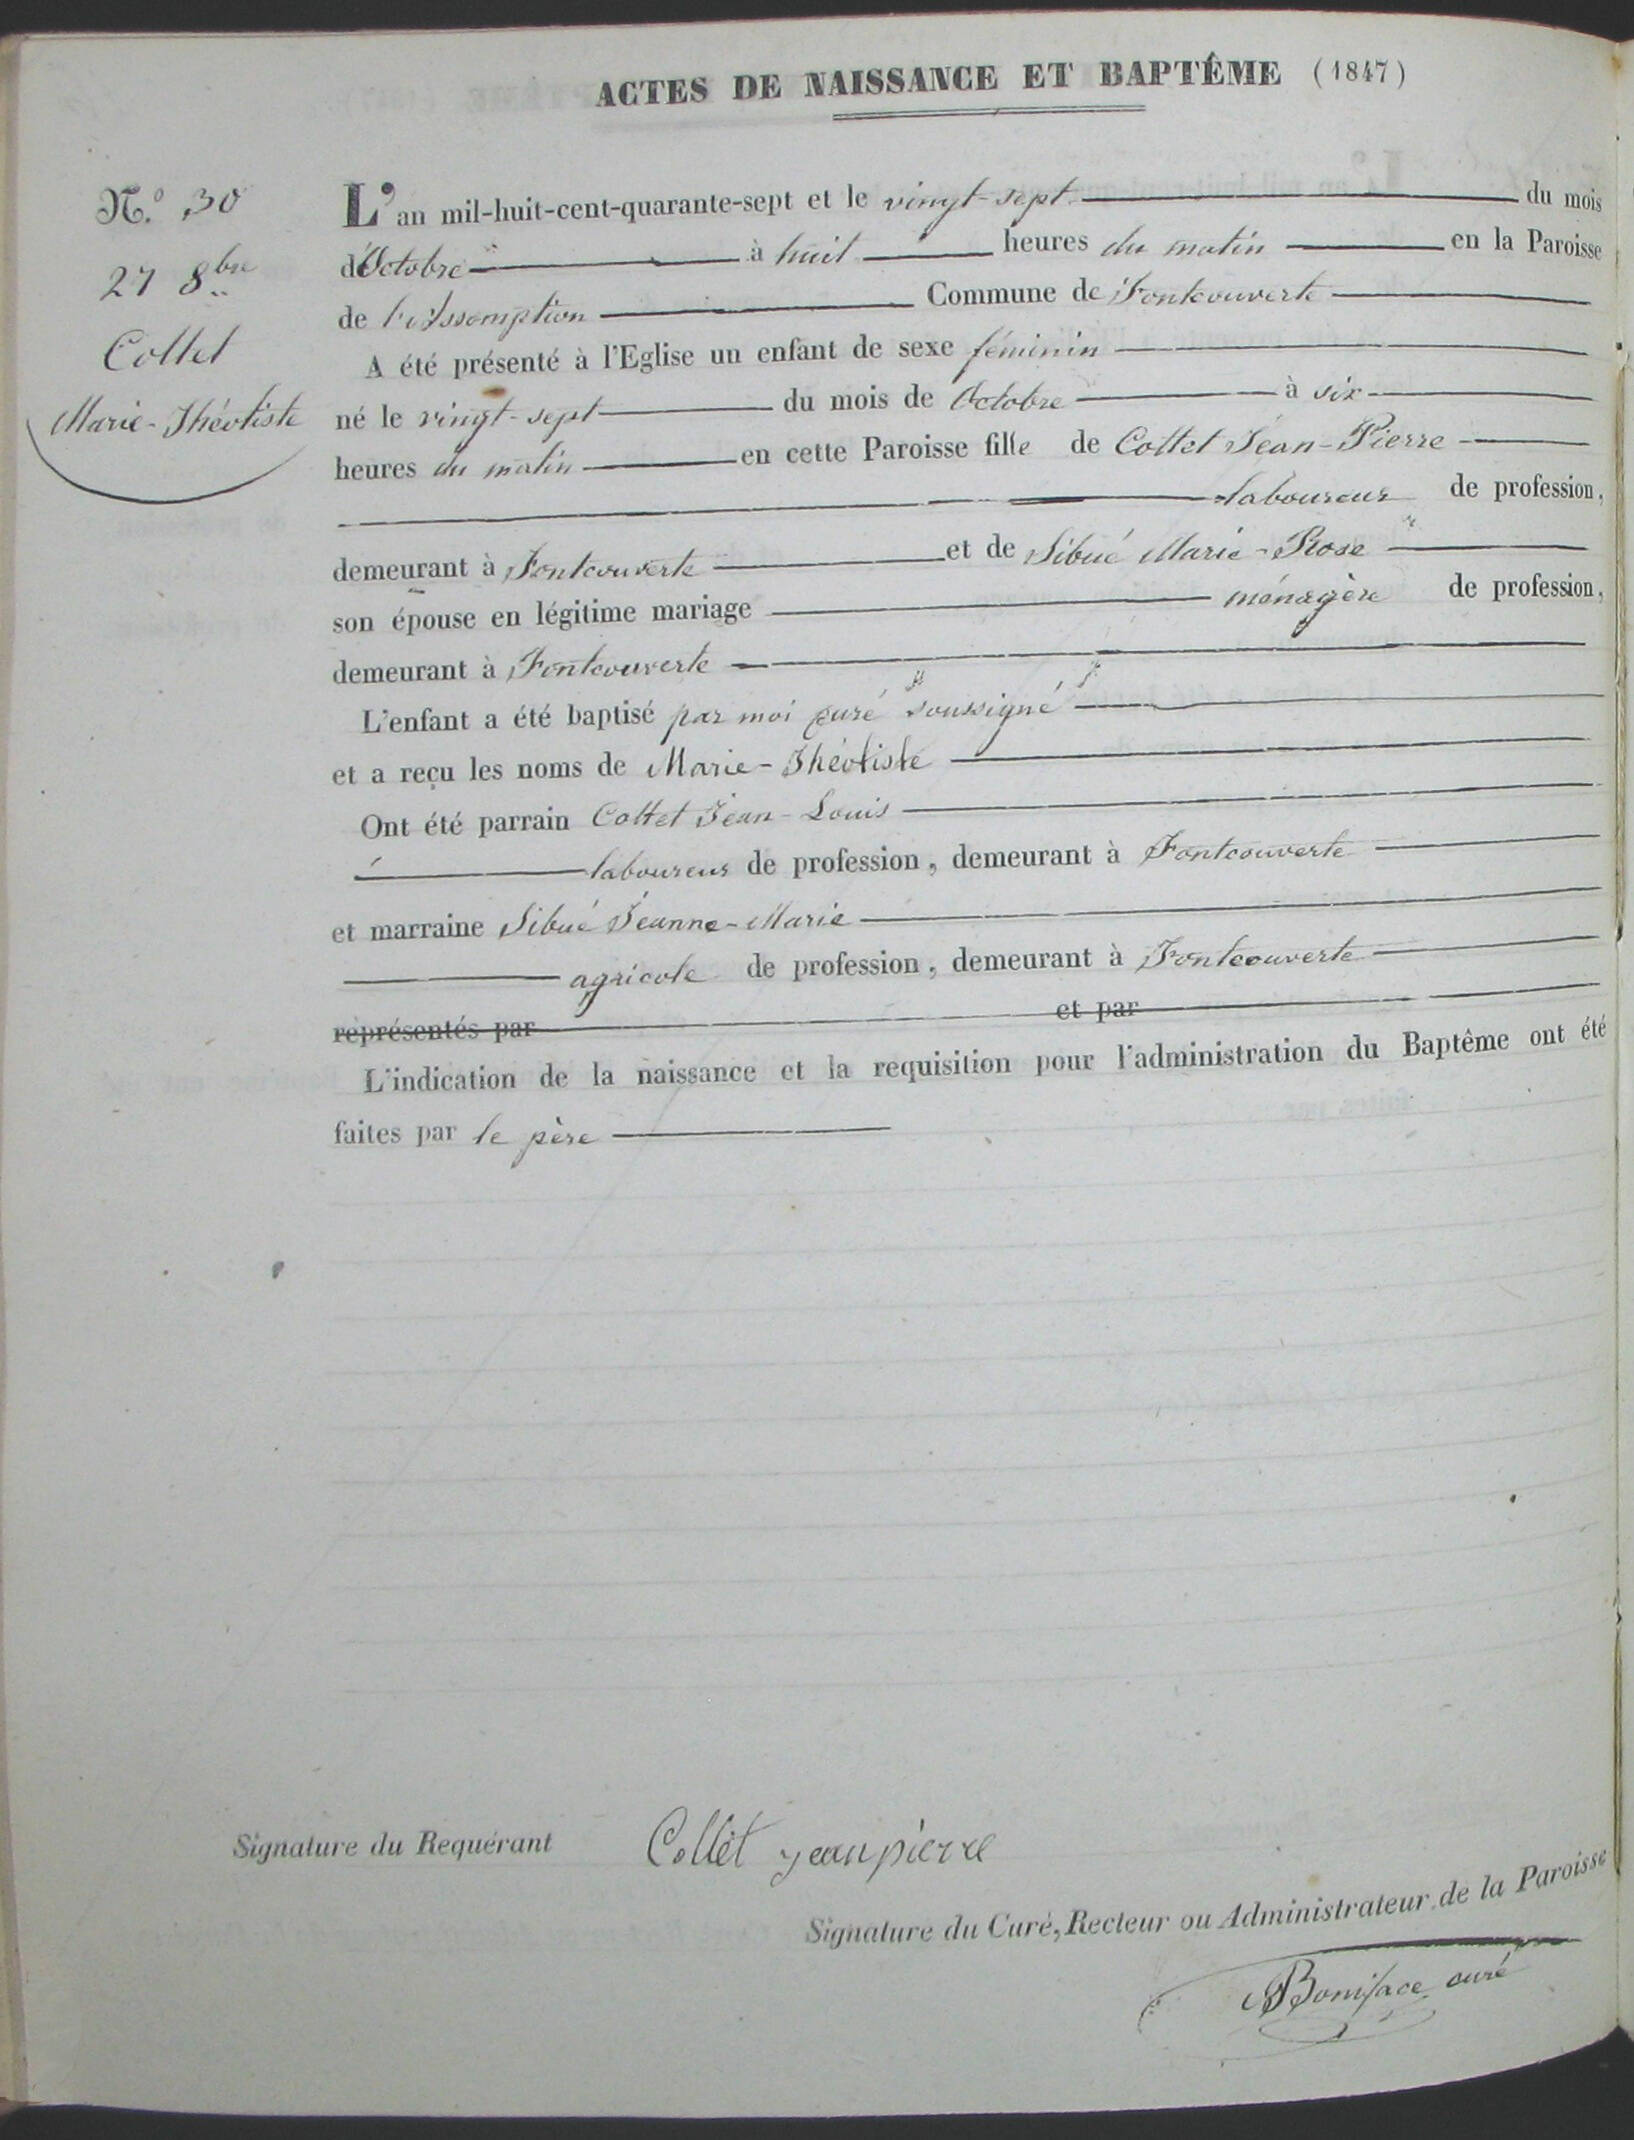 ACTES DE NAISSANCE ET BAPTÊME (1847)
N.º 30
27 8bre
Collet
Marie-Théotiste
L'an mil-huit-cent-quarante-sept et le vingt-sept du mois
d'Octobre à huit heures du matin en la Paroisse
de l'Assomption Commune de Fontcouverte
A été présenté à l'Eglise un enfant de sexe féminin
né le vingt-sept du mois de Octobre à six
heures du matin en cette Paroisse fille de Collet Jean-Pierre
laboureur de profession,
demeurant à Fontcouverte et de Sibué Marie-Rose
son épouse en légitime mariage ménagère de profession,
demeurant à Fontcouverte
L'enfant a été baptisé par moi curé soussigné
et a reçu les noms de Marie-Théotiste
Ont été parrain Collet Jean-Louis
laboureur de profession, demeurant à Fontcouverte
et marraine Sibué Jeanne-Marie
agricole de profession, demeurant à Fontcouverte
représentés par et par
L'indication de la naissance et la requisition pour l'administration du Baptême ont été
faites par le père
Signature du Requérant Collet jean pierre
Signature du Curé, Recteur ou Administrateur de la Paroisse
Boniface curé